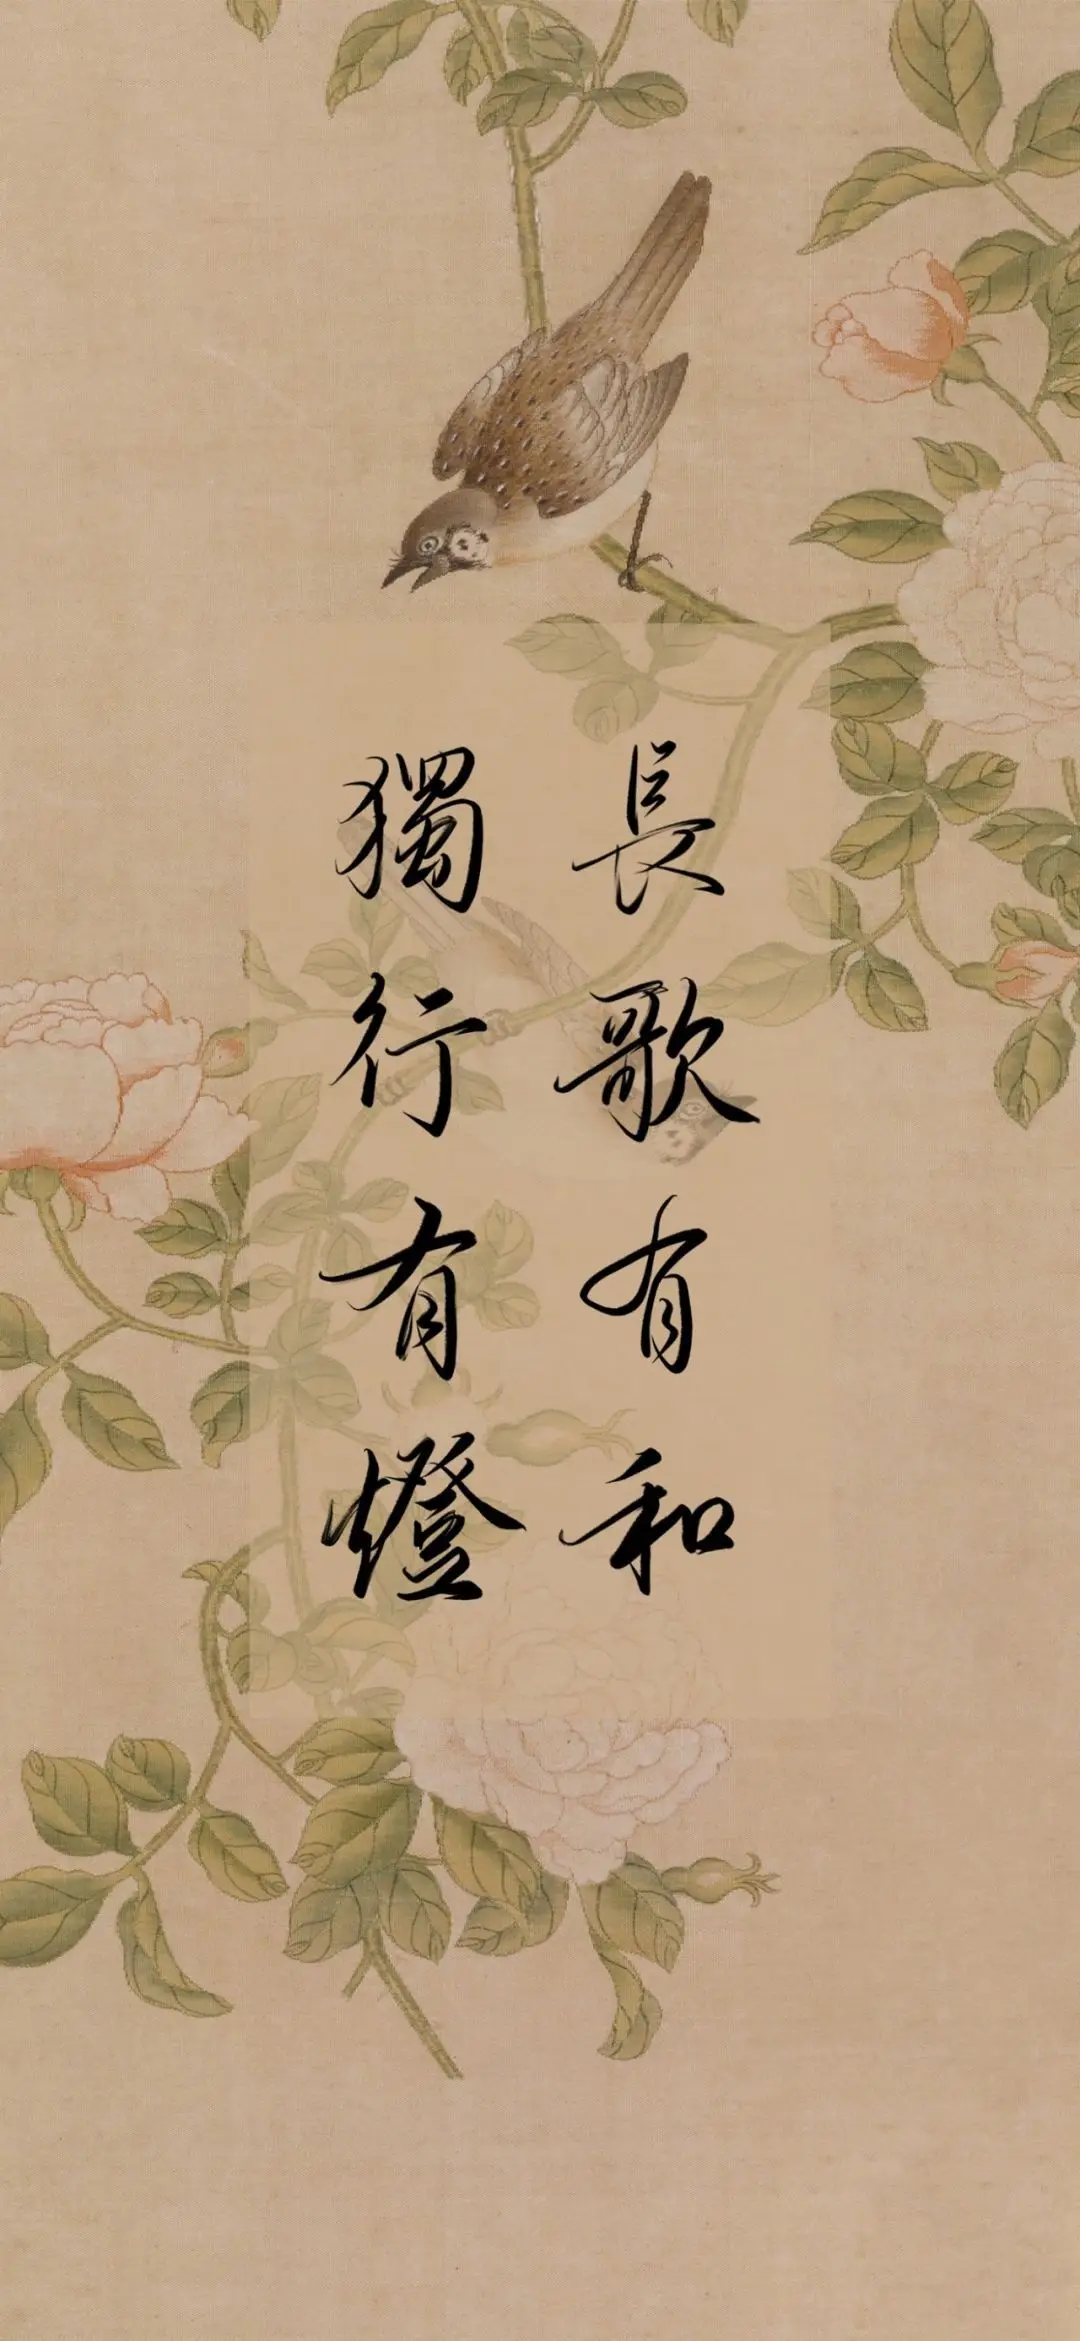 長歌有和
獨行有燈